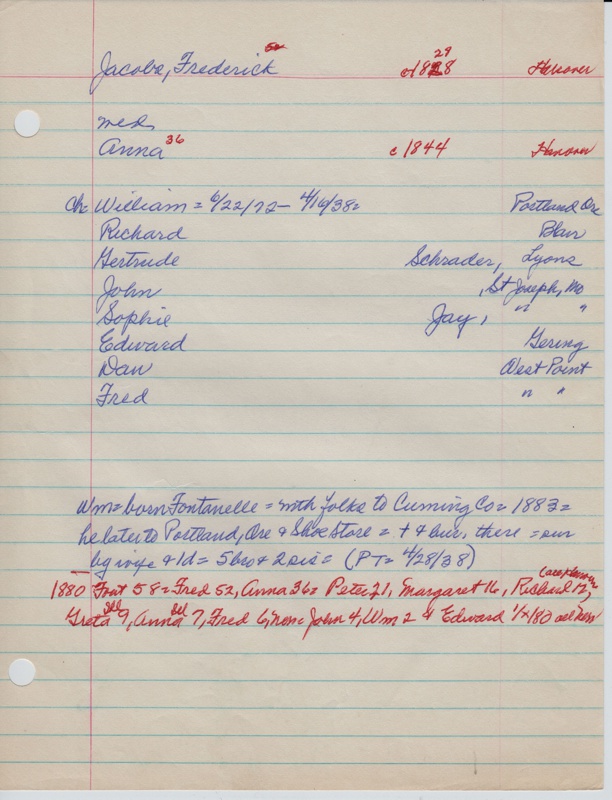 52 29
Jacobs, Frederick c1828 Hanover
med.
Anna 36 c1844 Hanover
Ch= William = 6/22/72 - 4/16/38= Portland Ore
Richard Blair
Gertrude Schrader, Lyons
John , St Joseph, Mo
Sophie Jay, " "
Edward Gering
Dan West Point
Fred " "
Wm = born Fontanelle = with folks to Cuming Co = 1883 =
he later to Portland, Ore & Shoe Store = + & bur. there = sur
by wife & 1d = 5 bro & 2 sis = (PT = 4/28/38)
1880 Font 58 = Fred 52, Anna 36 = Peter 21, Margaret 16, Richard 12,
Greta 9, Anna 7, Fred 6, non = John 4, Wm 2 & Edward 1/12/80